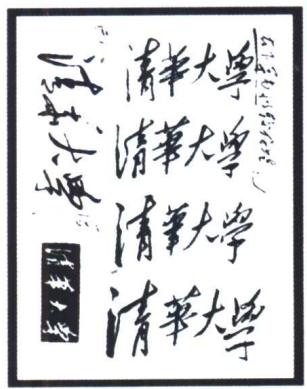 清華大學
清華大學
清華大學
清華大學
清華大學
清華大學